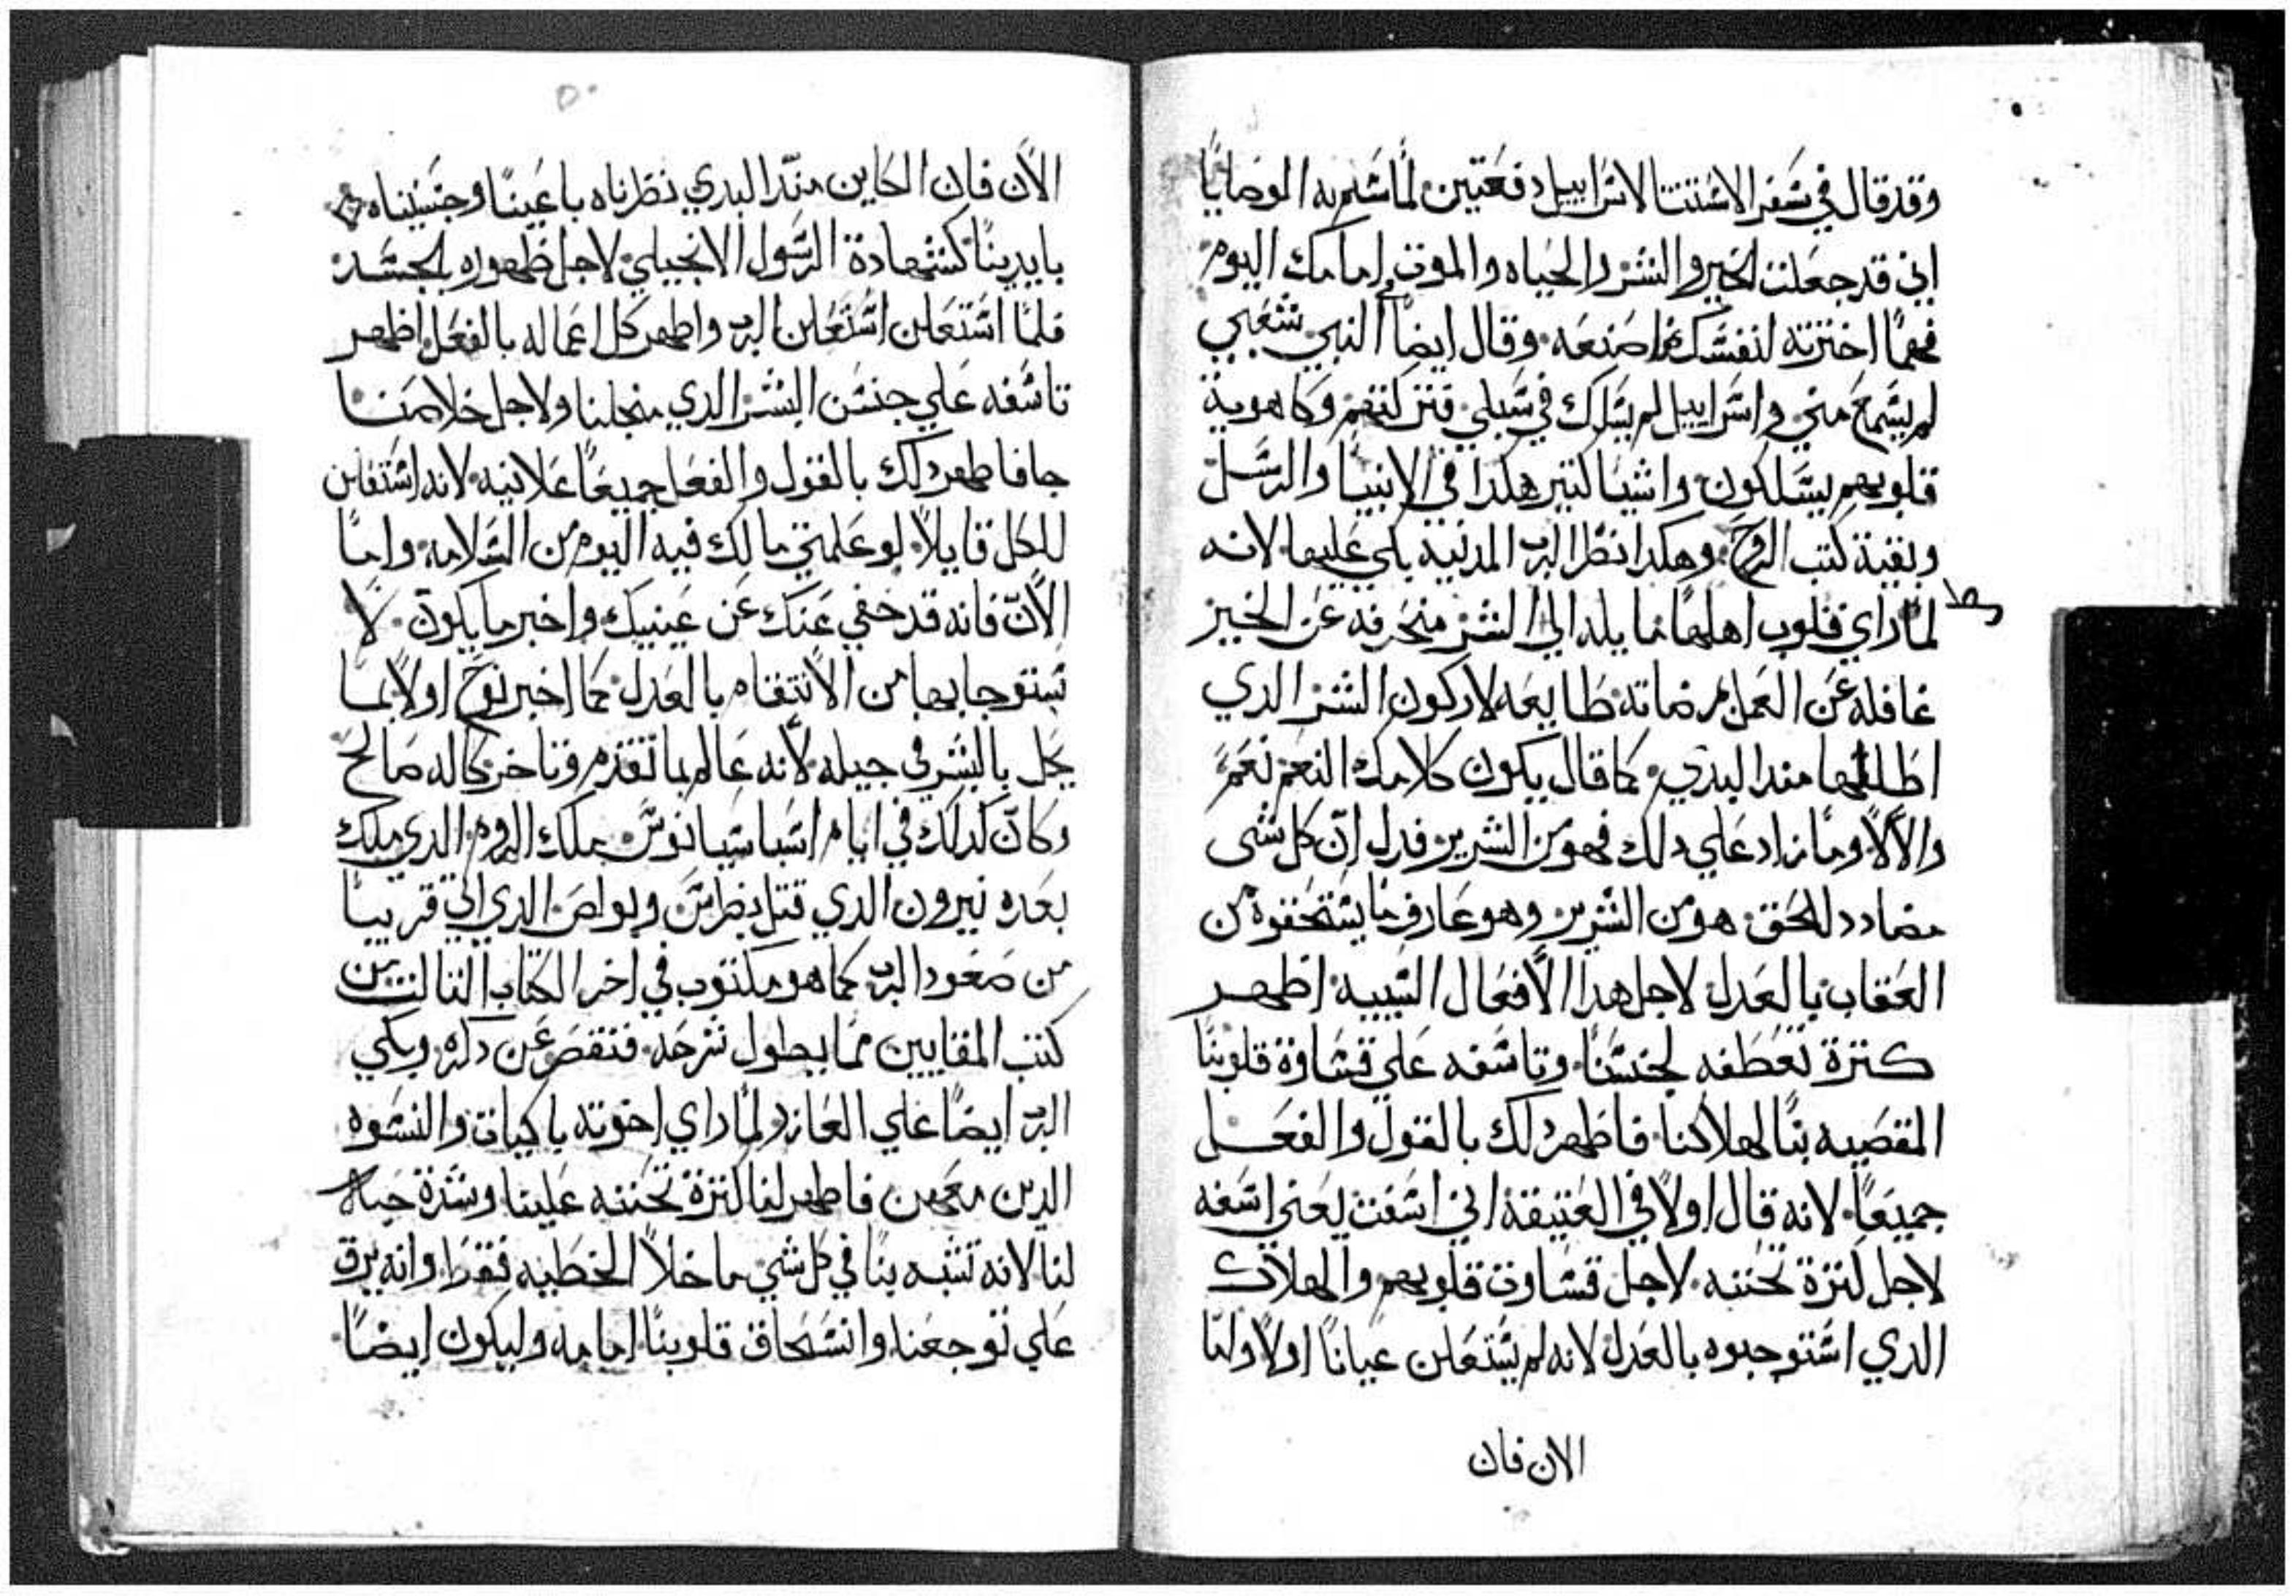 وقد قال في سفر الاشتتنا لاسراييل دفعتين لما سلم به الوصايا
اني قد جعلت الخير والشر والحياه والموت امامك اليوم
فمهما اخترته لنفسك اصنعه وقال ايضا في النبي شعبي
لم يسمع مني واسراييل لم يسلك في سبلي فتركتهم وكاهوية
قلوبهم يسلكون واشيا كتير هكدا في الانبيا والرسل
وبقية كتب الروح وهكدا نظر الرب المدنيه بكي عليها لانه
لما راي قلوب اهلها مايله الي الشر منحرفه عن الخير
غافله عن العمل بمرضاته طايعه لاركون الشر الدي
اطلقها مند البدي كما قال يكون كلامك النعم نعم
والالا وما زاد علي دلك فهو من الشرير فدل ان كل شي
مضادد للحق هو من الشرير وهو عارف ما يستحقوه من
العقاب بالعدل لاجل هدا الافعال السييه اظهر
كترة تعطفه لجنسنا وتاسفه علي قساوة قلوبنا
المقصيه بنا لهلاكنا فاظهر دلك بالقول والفعل
جميعا لانه قال اولا في العتيقة اني اسفت يعني اسفه
لاجل كترة تحننه لاجل قساوت قلوبهم والهلاك
الدي استوجبوه بالعدل لانه لم يستعلن عيانا اولا واما
الان فان
٥٠
الان فان الكاين مند البدي نظرناه باعيننا وجسسناه
بايدينا كشهادة الرسول الانجيلي لاجل ظهوره بالجسد
فلما استعلن استعلن الرب واظهر كل اعماله بالفعل اظهر
تاسفه علي جنس البشر الدي من اجلنا ولاجل خلاصنا
جا فاظهر دلك بالقول والفعل جميعا علانيه لانه استعلن
للكل قايلا لو علمتي مالك فيه اليوم من السلامه واما
الان فانه قد خفي عنك عن عينيك واخبر ما يكون لا
ستوجابها من الانتقام بالعدل كما اخبر نوح اولا بما
يحل بالبشر في جيله لانه عالم بما تقدم وتاخر كاله صالح
وكان كدلك في ايام اسباسيانوس ملك الروم الدي ملك
بعده نيرون الدي قتل بطراس وبولص الدي اتي قريبا
من صعود الرب كما هو مكتوب في اخر الكتاب التالت من
كتب المقابيين مما يطول شرحه فنقصر عن دكره وبكي
الرب ايضا علي العازر لما راي اخوته باكيات والنسوه
الدين معهن فاظهر لنا كترة تحننه علينا وشدة حبه
لنا لانه تشبه بنا في كل شي ما خلا الخطيه فقط وانه يرق
علي توجعنا وانسحاق قلوبنا امامه وليكون ايضا